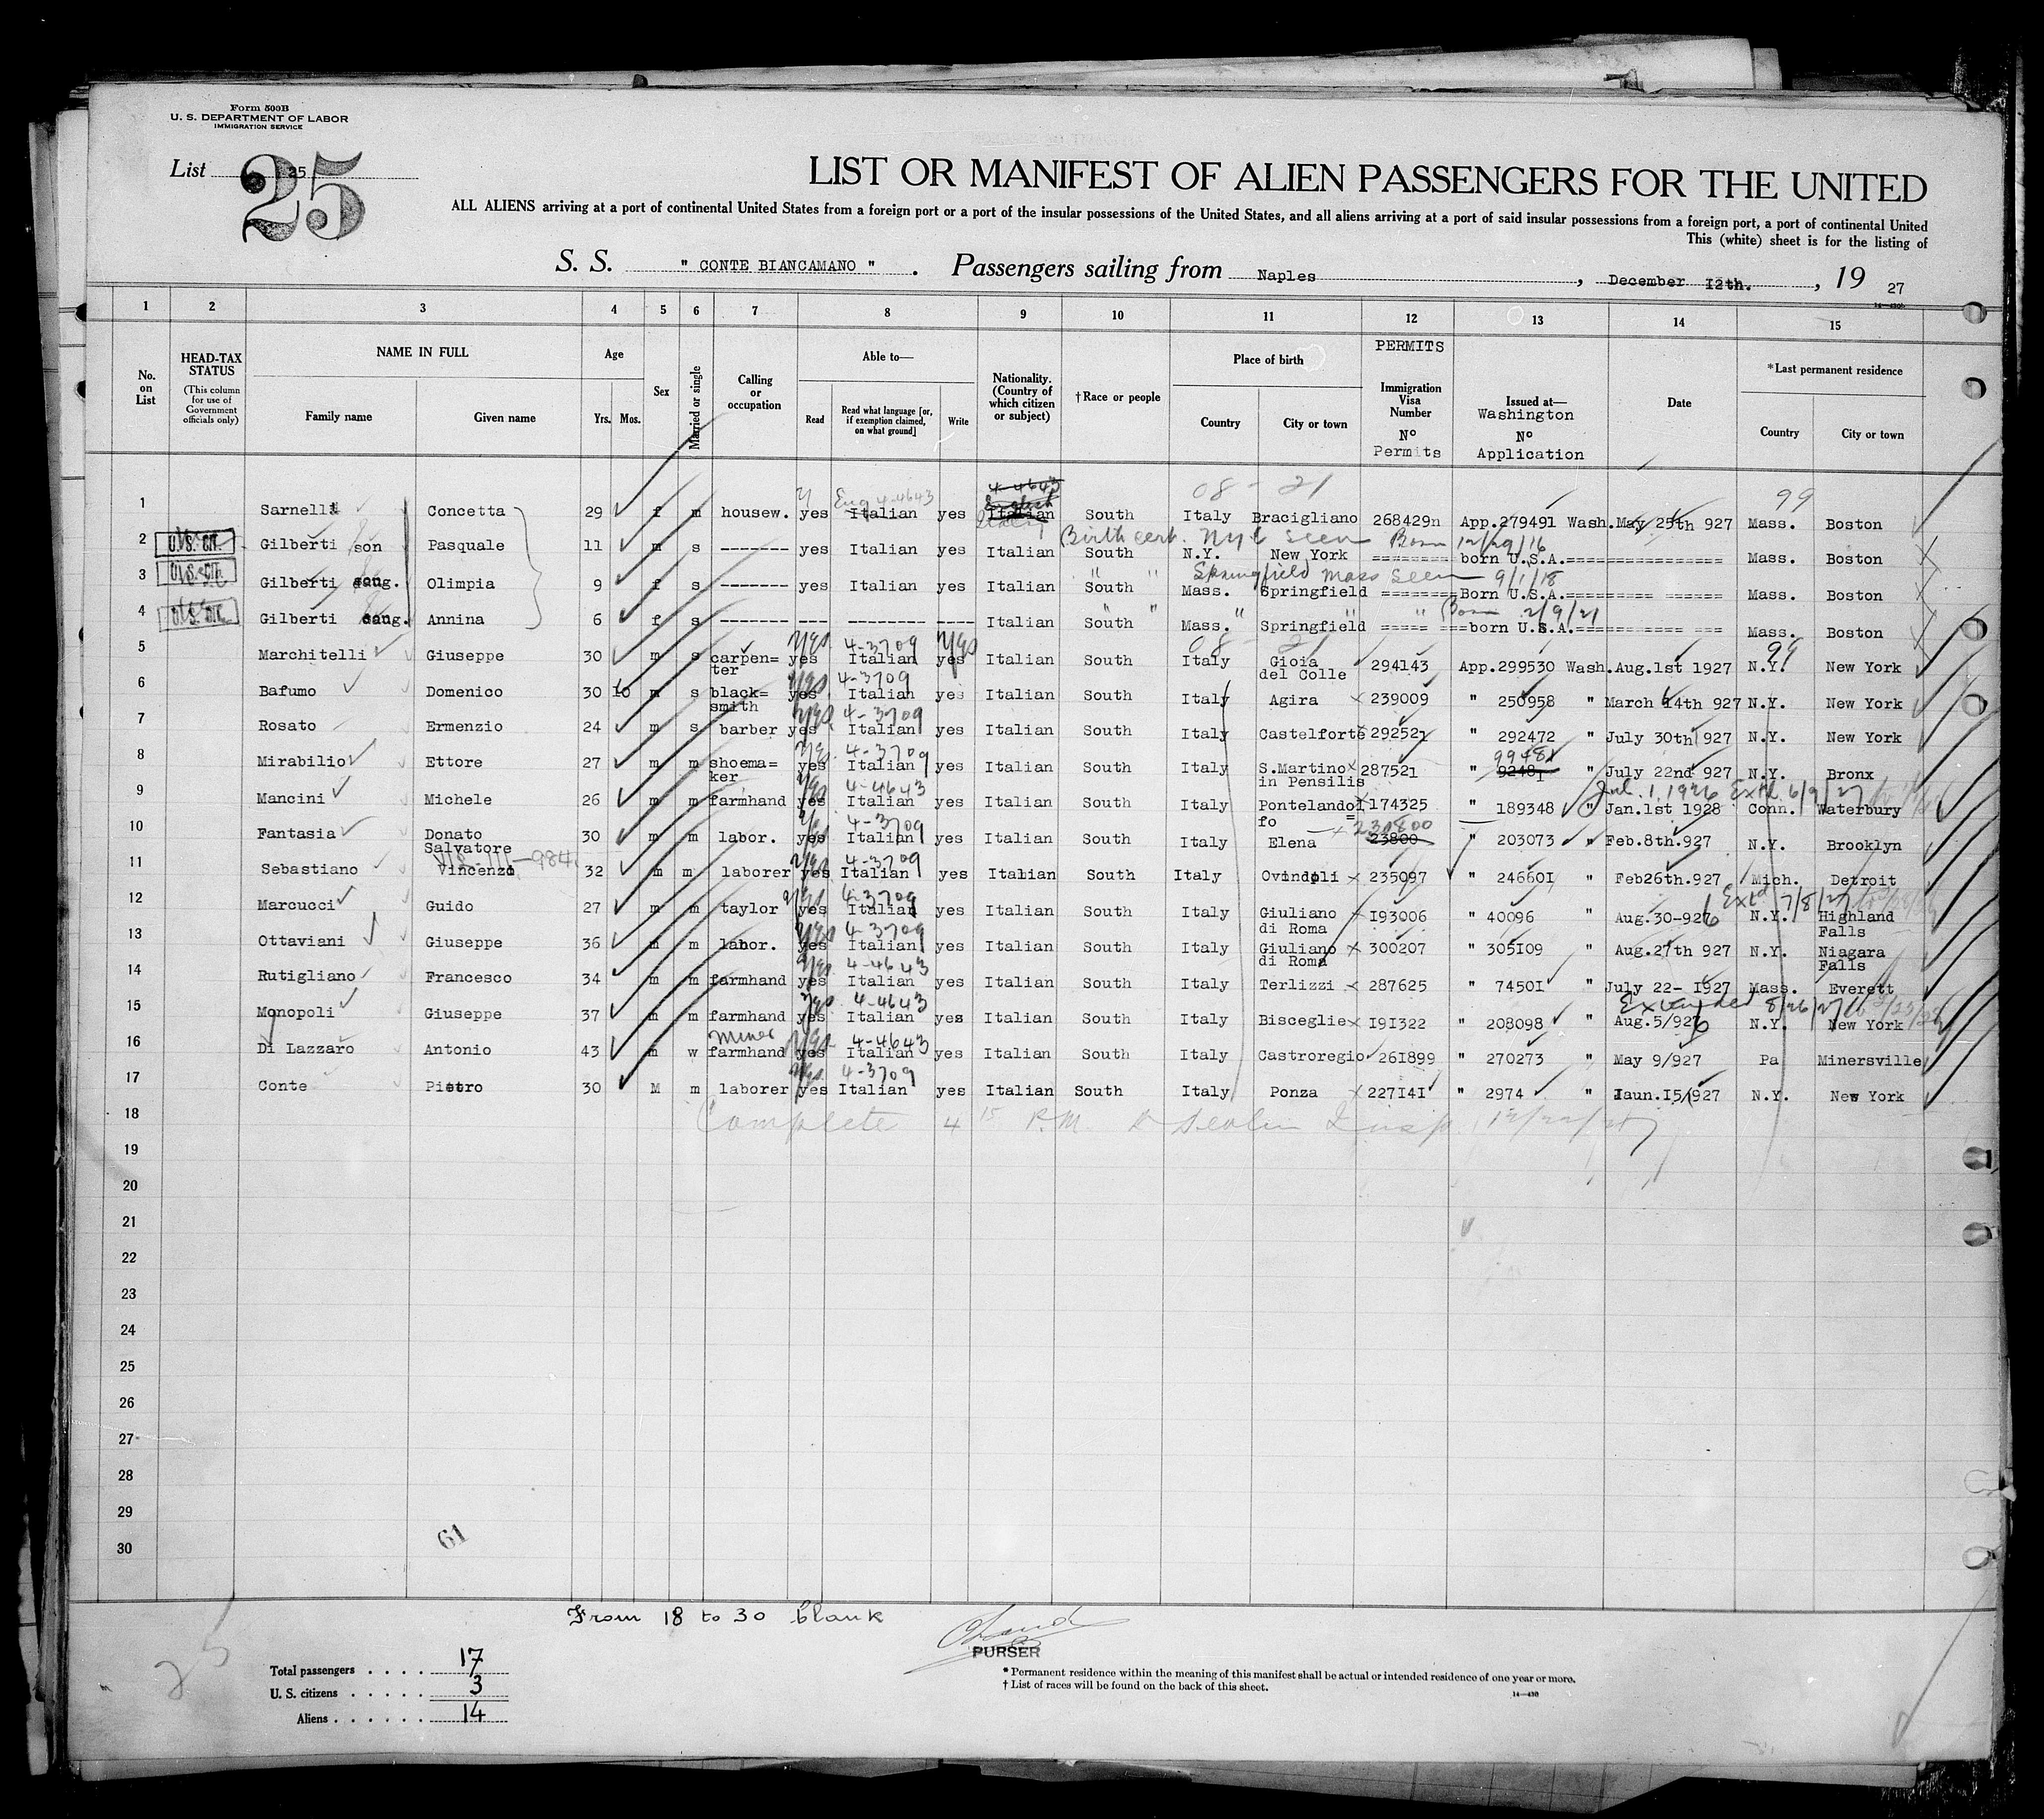 Form 500B
U. S. DEPARTMENT OF LABOR
IMMIGRATION SERVICE
List 25
25
LIST OR MANIFEST OF ALIEN PASSENGERS FOR THE UNITED
ALL ALIENS arriving at a port of continental United States from a foreign port or a port of the insular possessions of the United States, and all aliens arriving at a port of said insular possessions from a foreign port, a port of continental United
This (white) sheet is for the listing of
S. S. " CONTE BIANCAMANO " . Passengers sailing from Naples , December 12th. , 19 27
14—430
1 2 3 4 5 6 7 8 9 10 11 12 13 14 15
No. on List
HEAD-TAX STATUS
(This column for use of Government officials only)
NAME IN FULL
Family name Given name
Age
Yrs. Mos.
Sex
Married or single
Calling or occupation
Able to—
Read Read what language [or, if exemption claimed, on what ground] Write
Nationality. (Country of which citizen or subject)
†Race or people
Place of birth
Country City or town
PERMITS
Immigration Visa Number
Nº Permits
Issued at—
Washington
Nº Application
Date
*Last permanent residence
Country City or town
4-4643
Eng 4-4643 English 08 - 21 99
1 Sarnelli Concetta 29 f m housew. yes Italian yes Italian South Italy Bracigliano 268429n App.279491 Wash. May 25th 927 Mass. Boston
Birth cert. NYC seen Born 12/29/16
2 U.S. CIT. Gilberti son Pasquale 11 m s ------- yes Italian yes Italian South N.Y. New York ======== born U.S.A.================ Mass. Boston
" " Springfield Mass seen 9/1/18
3 U.S. CIT. Gilberti daug. Olimpia 9 f s ------- yes Italian yes Italian South Mass. Springfield ========Born U.S.A.========= ====== Mass. Boston
" " " " " Born 2/9/21
4 U.S. CIT. Gilberti daug. Annina 6 f s ------- --- -------- ---- Italian South Mass. Springfield ===== ===born U.S.A.=========== === Mass. Boston
yes 4-3709 yes 08 - 21 99
5 Marchitelli Giuseppe 30 m s carpen= ter yes Italian yes Italian South Italy Gioia del Colle 294143 App.299530 Wash. Aug.1st 1927 N.Y. New York
yes 4-3709
6 Bafumo Domenico 30 10 m s black= smith yes Italian yes Italian South Italy Agira 239009 " 250958 " March 14th 927 N.Y. New York
yes 4-3709
7 Rosato Ermenzio 24 m s barber yes Italian yes Italian South Italy Castelforte 292521 " 292472 " July 30th 927 N.Y. New York
yes 4-3709 99481
8 Mirabilio Ettore 27 m m shoema= ker yes Italian yes Italian South Italy S.Martino in Pensilis 287521 " 92481 " July 22nd 927 N.Y. Bronx
yes 4-4643 Jul. 1, 1926 Extd 6/9/27
9 Mancini Michele 26 m m farmhand yes Italian yes Italian South Italy Pontelandol= fo 174325 " 189348 " Jan.1st 1928 Conn. Waterbury
yes 4-3709 230800
10 Fantasia Donato Salvatore 30 m m labor. yes Italian yes Italian South Italy Elena 23800 " 203073 " Feb.8th.927 N.Y. Brooklyn
yes 4-3709
11 Sebastiano Vincenzo 32 m m laborer yes Italian yes Italian South Italy Ovindoli 235097 " 246601 " Feb26th.927 Mich. Detroit
yes 4-3709 Extd 7/8/27
12 Marcucci Guido 27 m m taylor yes Italian yes Italian South Italy Giuliano di Roma I93006 " 40096 " Aug.30-926 N.Y. Highland Falls
yes 4-3709
13 Ottaviani Giuseppe 36 m m labor. yes Italian yes Italian South Italy Giuliano di Roma 300207 " 305I09 " Aug.27th 927 N.Y. Niagara Falls
yes 4-4643
14 Rutigliano Francesco 34 m m farmhand yes Italian yes Italian South Italy Terlizzi 287625 " 7450I " July 22- I927 Mass. Everett
yes 4-4643 Extended 8/26/27
15 Monopoli Giuseppe 37 m m farmhand yes Italian yes Italian South Italy Bisceglie I9I322 " 208098 " Aug.5/926 N.Y. New York
Miner yes 4-4643
16 Di Lazzaro Antonio 43 m w farmhand yes Italian yes Italian South Italy Castroregio 261899 " 270273 " May 9/927 Pa Minersville
yes 4-3709
17 Conte Pietro 30 M m laborer yes Italian yes Italian South Italy Ponza 227I4I " 2974 " Iaun.I5/927 N.Y. New York
18 Complete 4 15 P.M. Insp. 12/22/27
19
20
21
22
23
24
25
26
27
28
29
30
61
From 18 to 30 blank
PURSER
25
Total passengers . . . . 17
U. S. citizens . . . . . 3
Aliens . . . . . . 14
* Permanent residence within the meaning of this manifest shall be actual or intended residence of one year or more.
† List of races will be found on the back of this sheet.
14—430